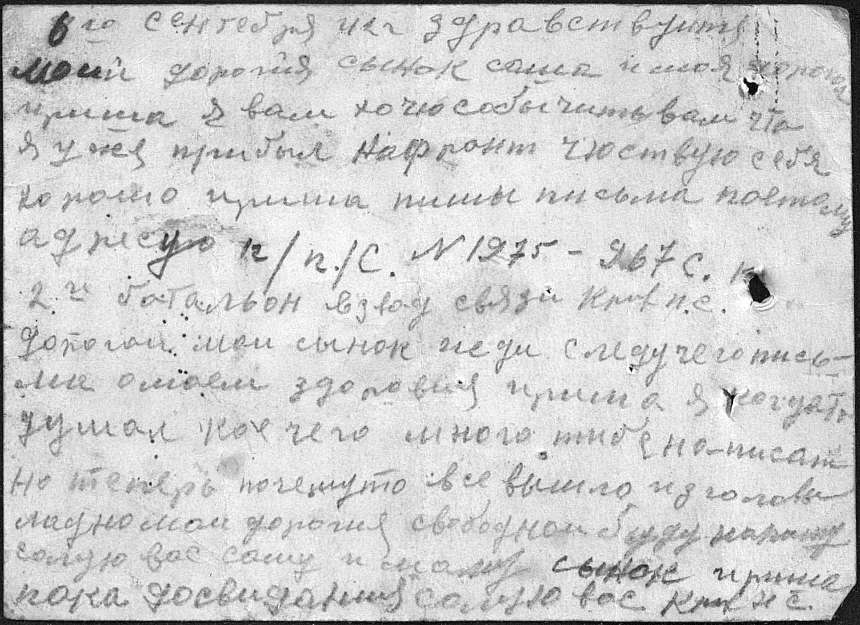 6го сентября здравствуйте
мои дорогия сынок саша и моя дорогая
ириша я вам хочю сообычить вам что
я уже прибыл на фронт чюствую себя
хорошо ириша пишы письма поетому
адресую п/п/с. N 1975 – 967 с. п
2й баталььон взвод связи Кри п.с.
дорогой мой сынок жди следучего пись-
ма о моем здоровия ириша я когдато
думал кое чего много тибе написат
но теперь почемуто все вышло из головы
ладно мои дорогия свободной буду напишу
салую вас сашу и сынок ириша
пока досвидания салую вас Кри п с.